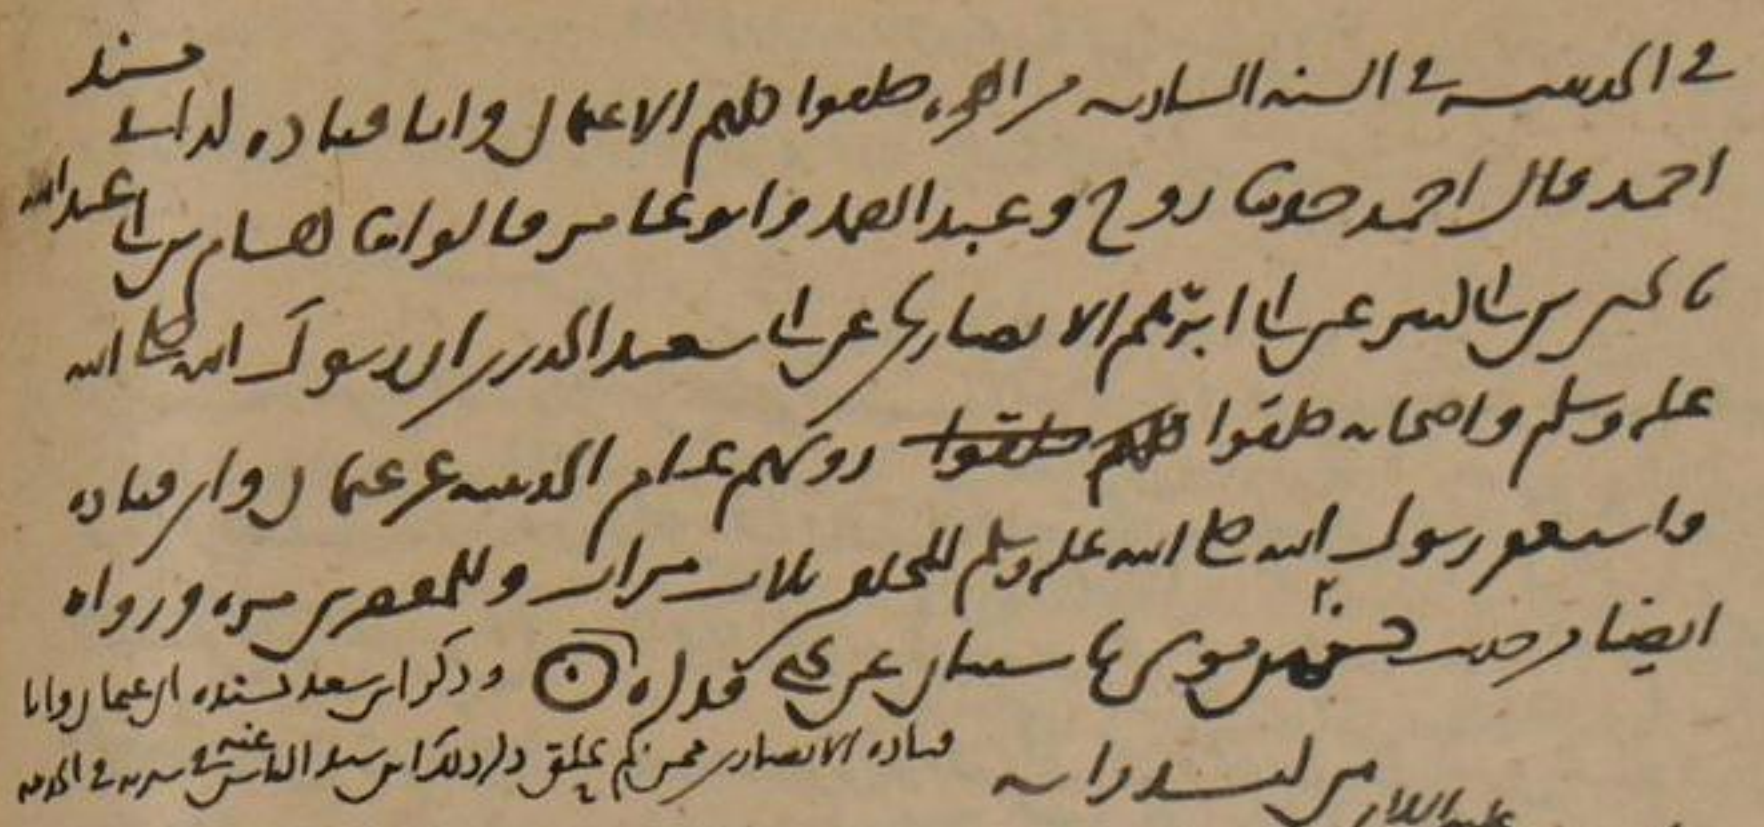 في الحديبية في السنة السادسة من الهجرة حلقوا كلهم الا عثمان وابا قتادة كذا في مسند
احمد قال احمد حدثنا روح وعبد الصمد وابو عامر قالوا ثنا هشام بن ابي عبد الله
عن ابي ابرهيم الانصاري عن ابي سعيد الخدري ان رسول الله صلى الله
عليه وسلم واصحابه حلقوا رووسهم عام الحديبية غير عثمان وابي قتادة
رسول الله صلى الله عليه وسلم للمحلقين ثلاث مرات وللمقصرين مرة ورواه
ايضا من حديث حسن بن موسى ثنا شيبان عن يحيى فذكره وذكر ابن سعد بسنده ان عثمان وابا
قتادة الانصاري ممن لم يحلق وذكر ذلك ابن سيد الناس عنه في سيرته في الحديبية